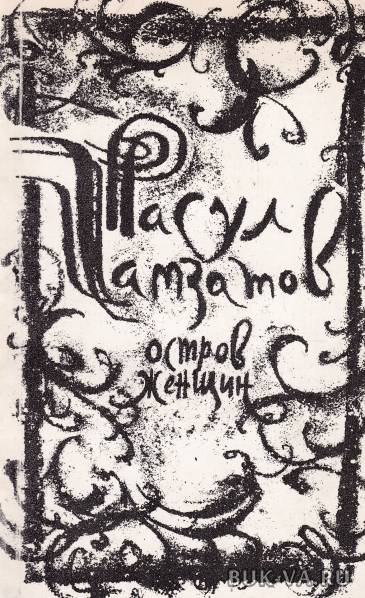 Расул
Гамзатов
остров
женщин
BUK-VA.RU